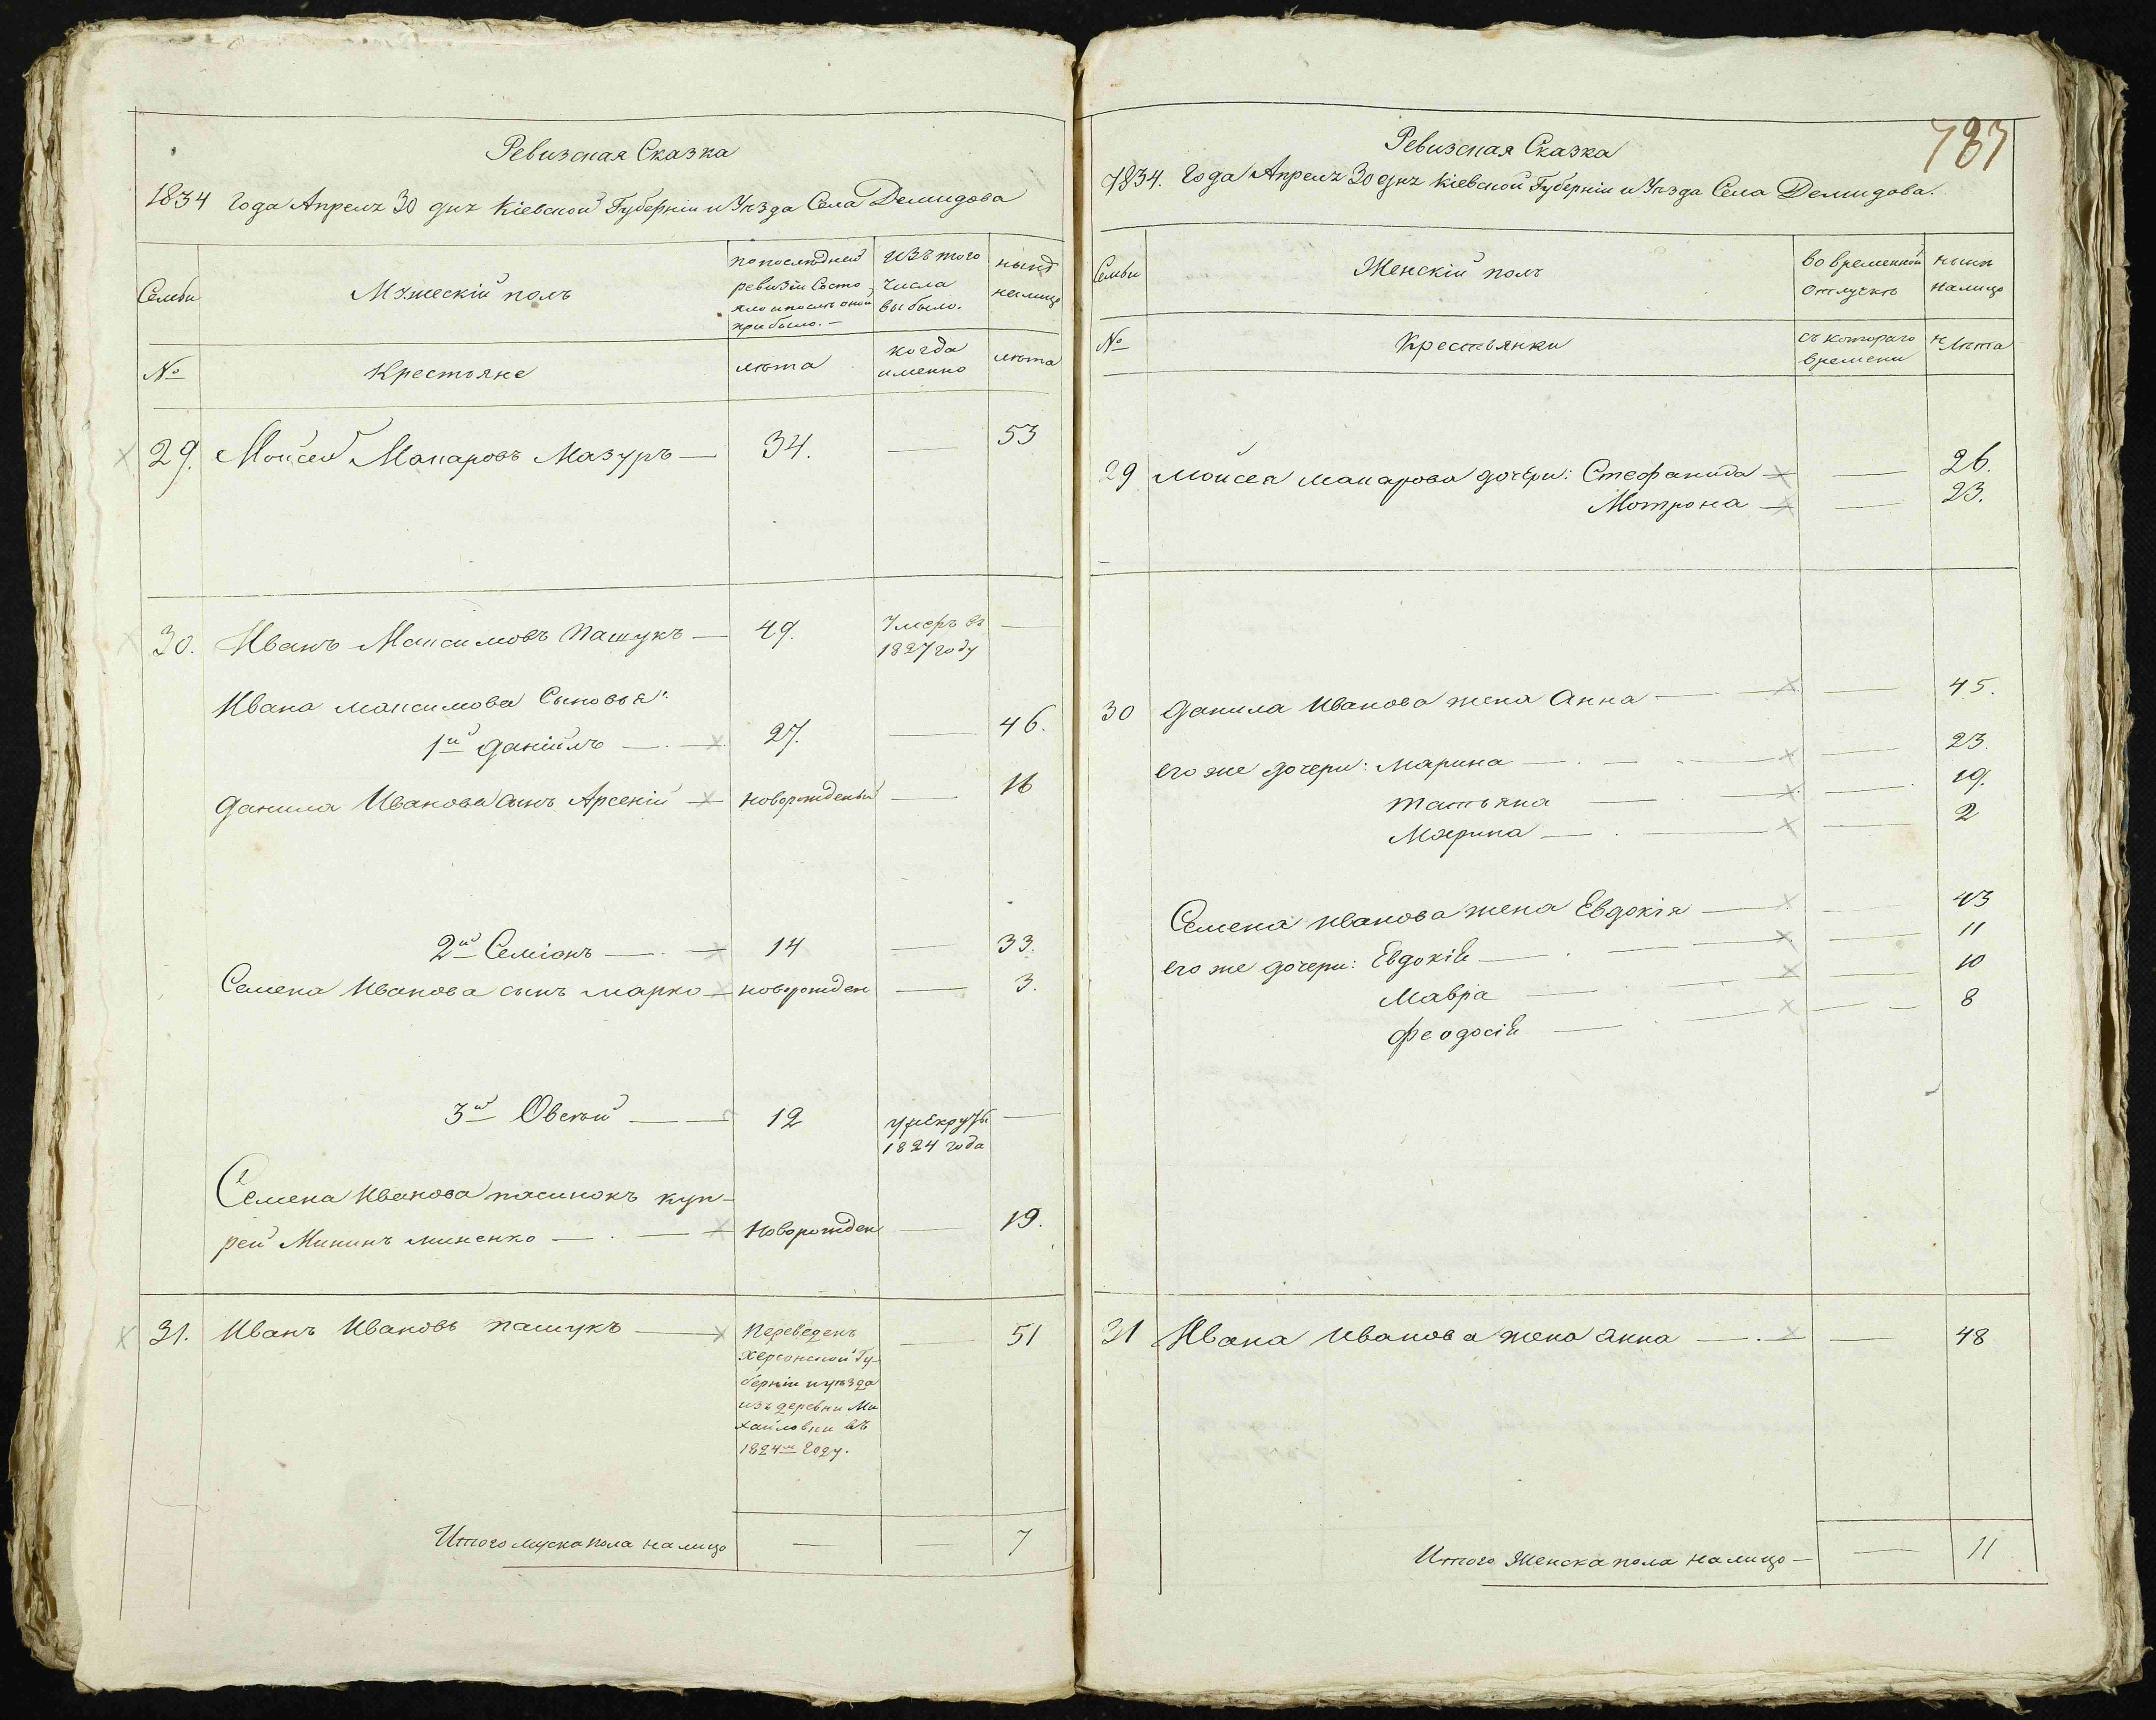 Ревизская Сказка
1834 года Апреля 30 дня Кіевской Губерніи и Уѣзда Села Демидова
Семьи
Мужескій полъ
по последней ревизіи Состо
яло и послѣ оной прибыло. —
изъ того числа выбыло.
нынѣ налицо
№
Крестьяне
лѣта
когда именно
лѣта
29. Мойсей Макаровъ Мазуръ — 34. — 53
30. Иванъ Максимовъ Пашукъ — 49. Умеръ въ —
1827 году
Ивана Максимова Сыновья:
1й Даніилъ — 27. — 46.
Данила Иванова сынъ Арсеній — новорожденый — 16
2й Семіонъ — 14 — 33.
Семена Иванова сынъ Марко — новорожден — 3.
3й Овсѣй — 12 —
1824 года
Семена Иванова пасинокъ Куп-
рей Мининъ Миненко — Новорожден — 19.
31. Иванъ Ивановъ Пашукъ — Переведенъ — 51
Херсонской Гу-
берніи и уѣзда
изъ деревни Ми
хайловки въ
1824м году.
Итого мужска пола налицо — — 7
787
Ревизская Сказка
1834. Года Апреля 30 дня Кіевской Губерніи и Уѣзда Села Демидова.
Семьи
Женскій полъ
во временной отлучкѣ
нынѣ налицо
№
Крестьянки
съ котораго времени
Лѣта
29 Мойсея Макарова дочери: Стефанида — — 26.
Мотрона — — 23.
30 Данила Иванова жена Анна — — 45.
его же дочери: Марина — — 23.
Татьяна — — 19.
Марина — — 2
Семена Иванова жена Евдокія — — 43
его же дочери: Евдокія — — 11
Мавра — — 10
Феодосія — — 8
31 Ивана Иванова жена Анна — — 48
Итого Женска пола налицо — — 11